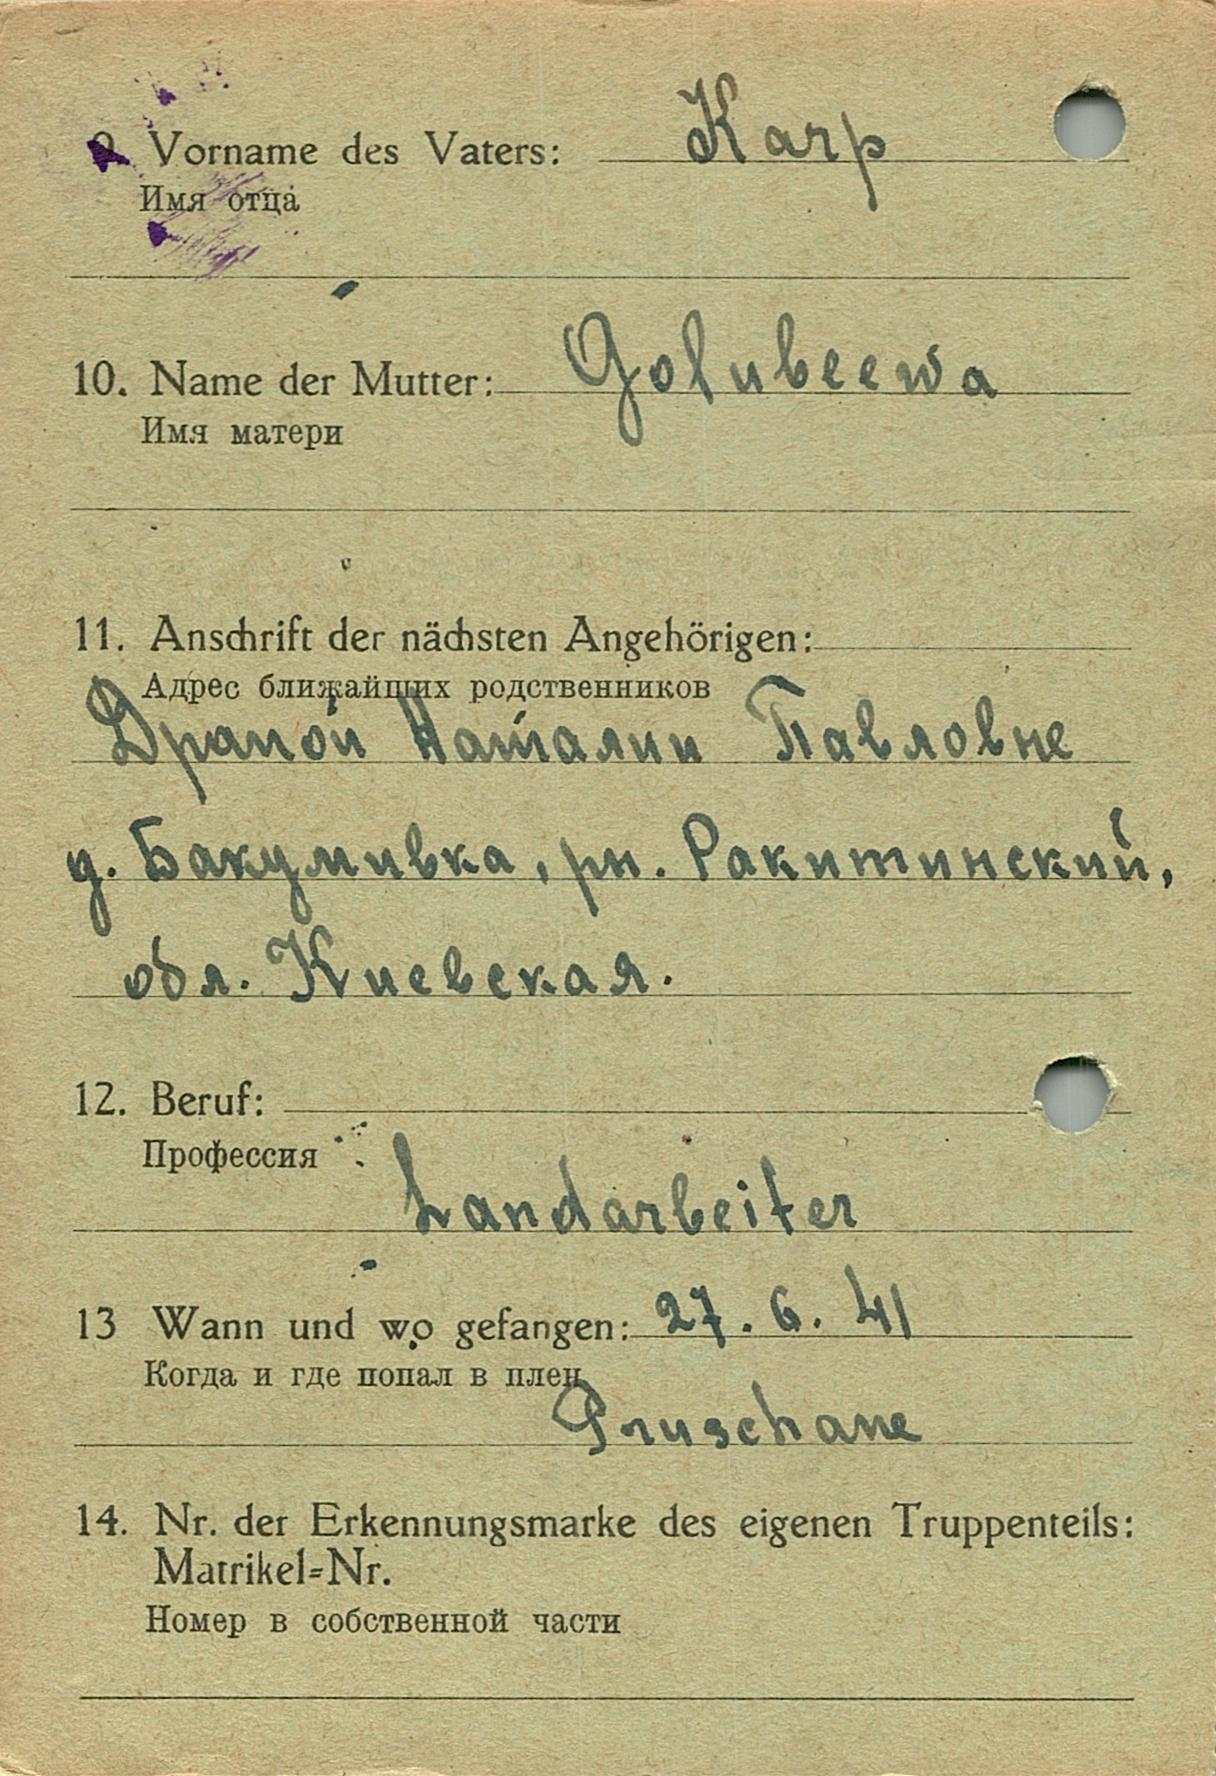 9. Vorname des Vaters: Karp
Имя отца
10. Name der Mutter: Golubeewa
Имя матери
11. Anschrift der nächsten Angehörigen:
Адрес ближайших родственников
Драпой Наталии Павловне
д. Бакумивка, рн. Ракитинский,
обл. Киевская.
12. Beruf:
Профессия
Landarbeiter
13 Wann und wo gefangen: 27. 6. 41
Когда и где попал в плен
Pruschane
14. Nr. der Erkennungsmarke des eigenen Truppenteils:
Matrikel=Nr.
Номер в собственной части